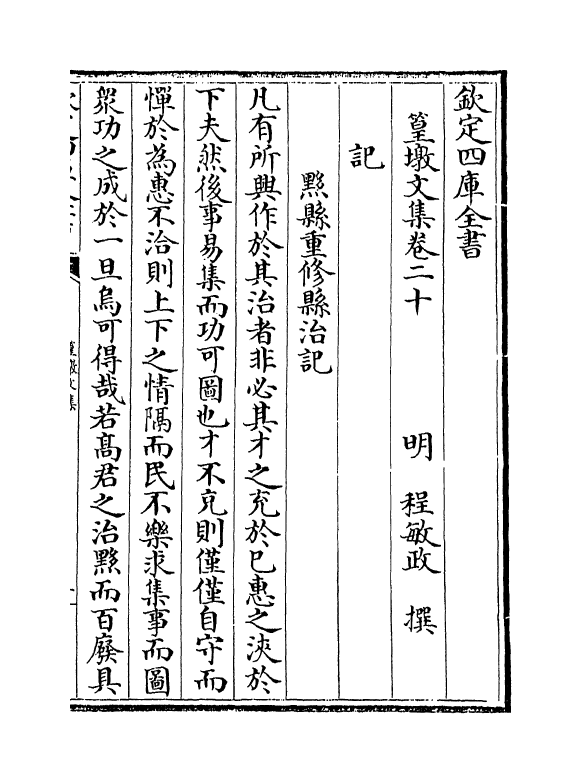 欽定四庫全書
篁墩文集卷二十
明 程敏政 撰
記
黟縣重修縣治記
凡有所興作於其治者非必其才之充於已惠之浹於
下夫然後事易集而功可圖也才不充則僅僅自守而
憚於為惠不洽則上下之情隔而民不樂求集事而圖
衆功之成於一旦烏可得哉若髙君之治黟而百廢具
篁墩文集